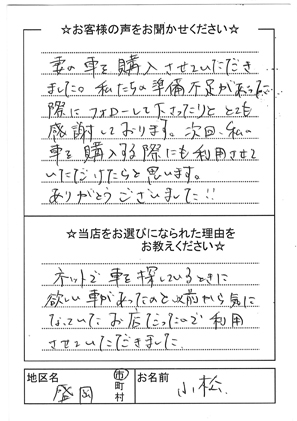 ☆お客様の声をお聞かせください☆
妻の車を購入させていただき
ました。私たちの準備不足があった
際にフォローして下さったりと とても
感謝しております。次回、私の
車を購入する際にも利用させて
いただけたらと思います。
ありがとうございました!!
☆当店をお選びになられた理由を
お教えください☆
ネットで車を探しているときに
欲しい車があったのと以前から気に
なっていたお店だったので利用
させていただきました
地区名 盛岡 市 町 村 お名前 小松